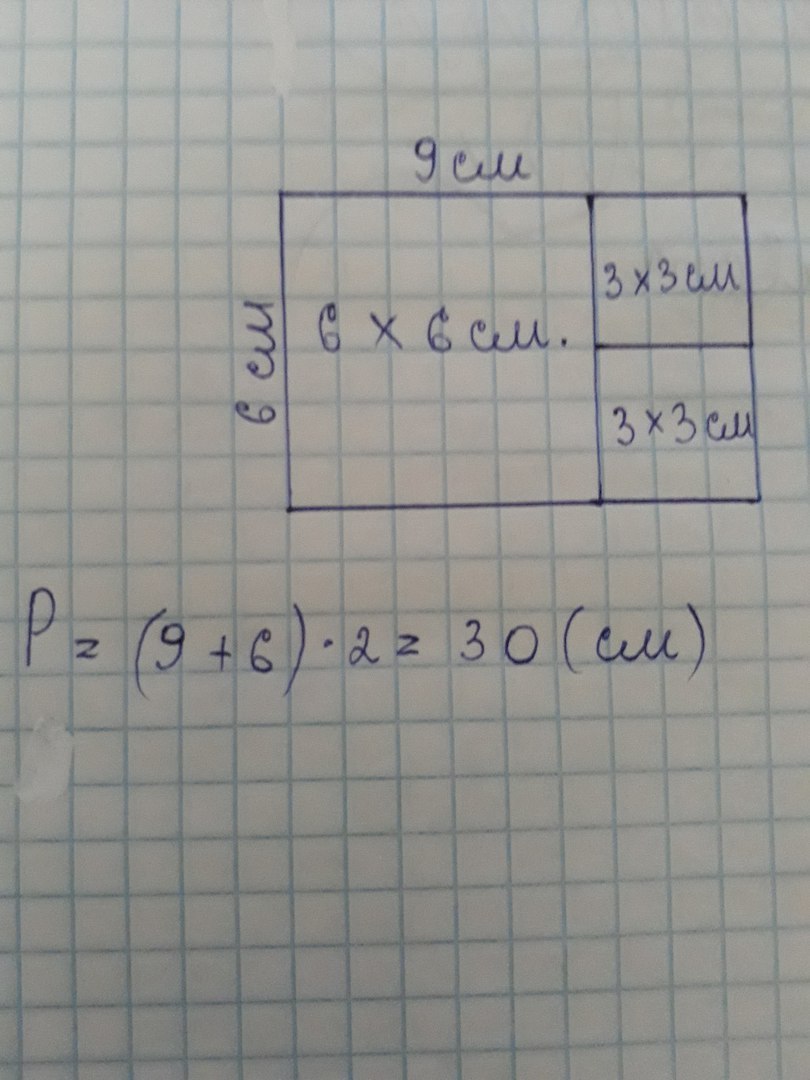 9 см
6 см
6 х 6 см.
3 х 3 см
3 х 3 см
P = (9 + 6) · 2 = 30 (см)